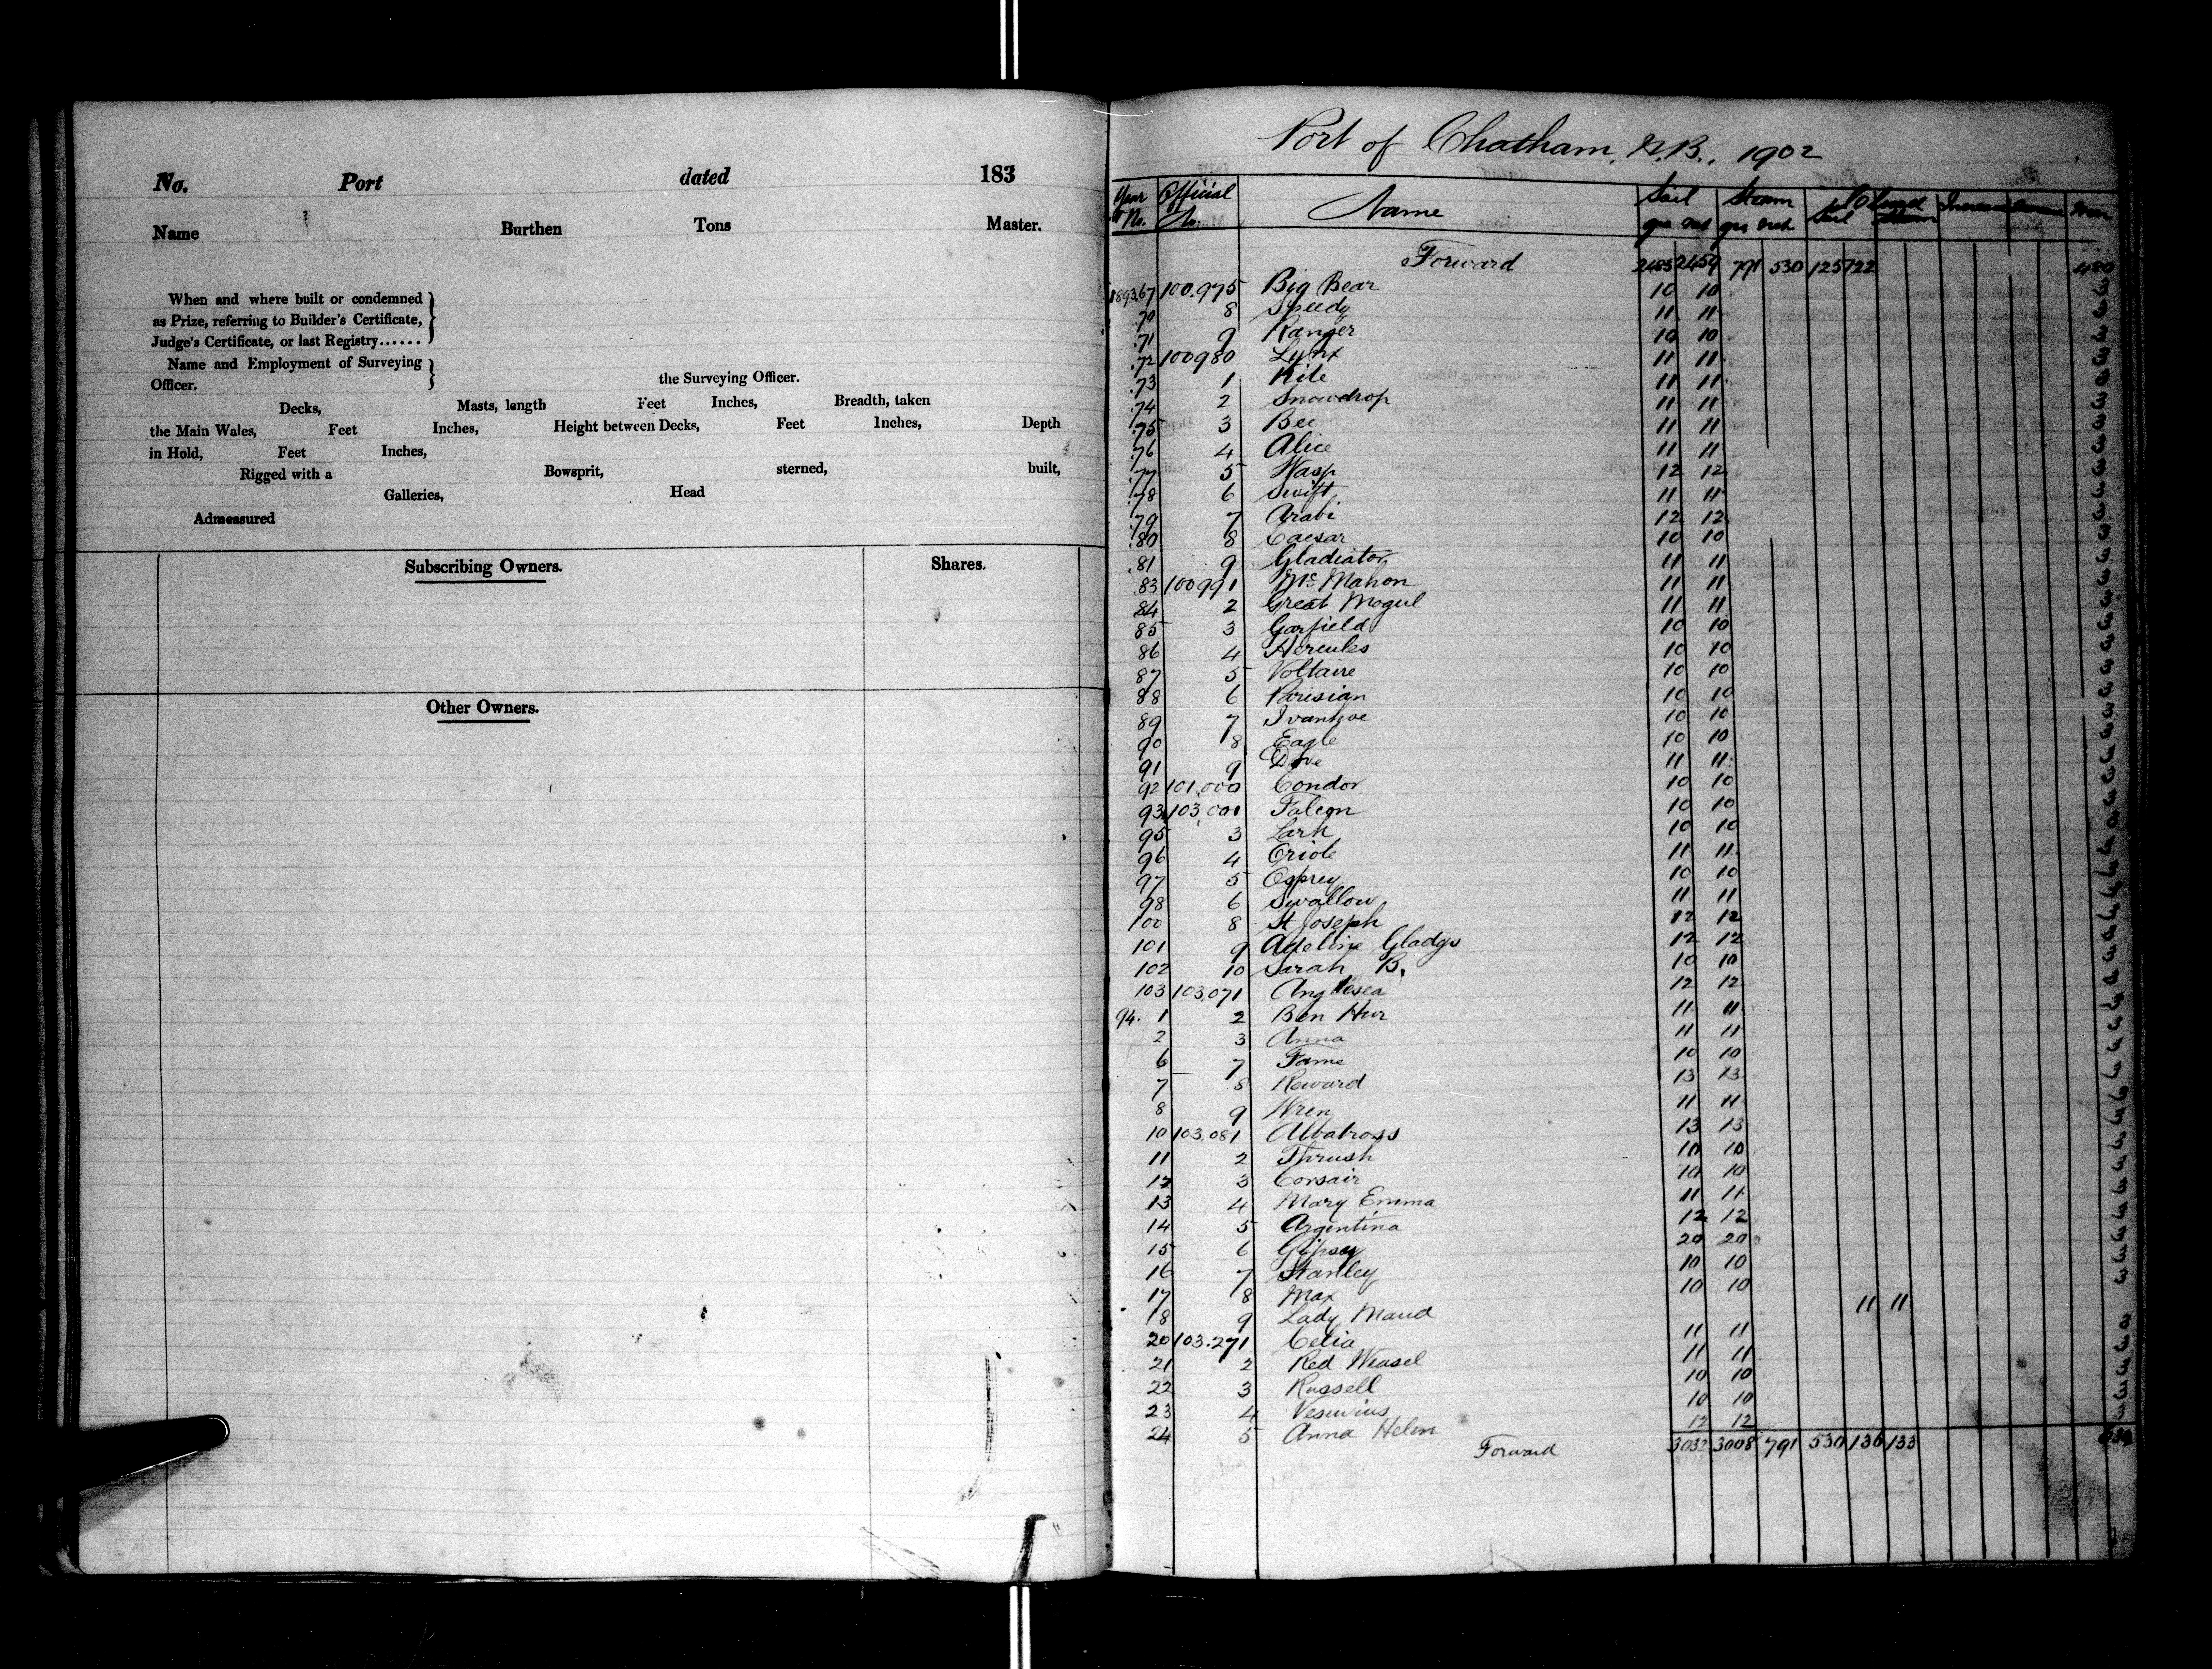 No. Port dated 183
Name Burthen Tons Master.
When and where built or condemned
as Prize, referring to Builder's Certificate,
Judge's Certificate, or last Registry......
Name and Employment of Surveying
Officer. the Surveying Officer.
Decks, Masts, length Feet Inches, Breadth, taken
the Main Wales, Feet Inches, Height between Decks, Feet Inches, Depth
in Hold, Feet Inches,
Rigged with a Bowsprit, sterned, built,
Galleries, Head
Admeasured
Subscribing Owners. Shares.
Other Owners.
Port of Chatham, N.B., 1902
Year & No. Official No. Name Sail Steam Sail Steam Men
Forward 2483 2459 791 530 125 122 480
1893,67 100,975 Big Bear 10 10 3
70 8 Speedy 11 11 3
71 9 Ranger 10 10 3
72 100980 Lynx 11 11 3
73 1 Kite 11 11 3
74 2 Snowdrop 11 11 3
75 3 Bee 11 11 3
76 4 Alice 11 11 3
77 5 Wasp 12 12 3
78 6 Swift 11 11 3
79 7 Arabi 12 12 3
80 8 Caesar 10 10 3
81 9 Gladiator 11 11 3
83 100991 McMahon 11 11 3
84 2 Great Mogul 11 11 3
85 3 Garfield 10 10 3
86 4 Hercules 10 10 3
87 5 Voltaire 10 10 3
88 6 Parisian 10 10 3
89 7 Ivanhoe 10 10 3
90 8 Eagle 10 10 3
91 9 Dove 11 11 3
92 101,000 Condor 10 10 3
93 103,001 Falcon 10 10 3
95 3 Lark 10 10 3
96 4 Oriole 11 11 3
97 5 Osprey 10 10 3
98 6 Swallow 11 11 3
100 8 St Joseph 12 12 3
101 9 Adeline Gladys 12 12 3
102 10 Sarah B. 10 10 3
103 103,071 Anglesea 12 12 3
94. 1 2 Ben Hur 11 11 3
2 3 Anna 11 11 3
6 7 Fame 10 10 3
7 8 Reward 13 13 3
8 9 Wren 11 11 3
10 103,081 Albatross 13 13 3
11 2 Thrush 10 10 3
12 3 Corsair 10 10 3
13 4 Mary Emma 11 11 3
14 5 Argentina 12 12 3
15 6 Gipsey 20 20 3
16 7 Stanley 10 10 3
17 8 Max 10 10 3
18 9 Lady Maud 11 11
20 103.271 Celia 11 11 3
21 2 Red Weasel 11 11 3
22 3 Russell 10 10 3
23 4 Vesuvius 10 10 3
24 5 Anna Helen 12 12 3
Forward 3032 3008 791 530 136 133